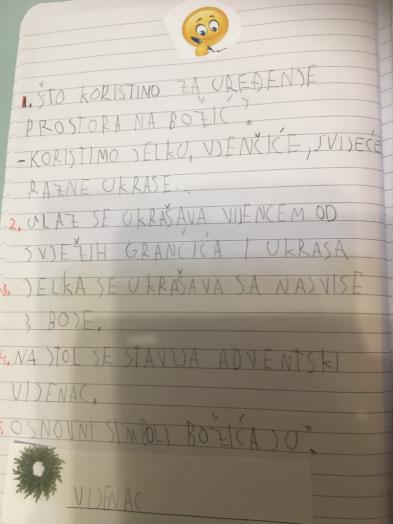 1. ŠTO KORISTIMO ZA UREĐENJE
PROSTORA NA BOŽIĆ?
-KORISTIMO JELKU, VJENČIĆE, SVIJEĆE
RAZNE UKRASE...
2. ULAZ SE UKRAŠAVA VIJENCEM OD
SVJEŽIH GRANČICA I UKRASA
3. JELKA SE UKRAŠAVA SA NAJVIŠE
3 BOJE.
4. NA STOL SE STAVLJA ADVENTSKI
VIJENAC.
5. OSNOVNI SIMBOLI BOŽIĆA SU:
VIJENAC